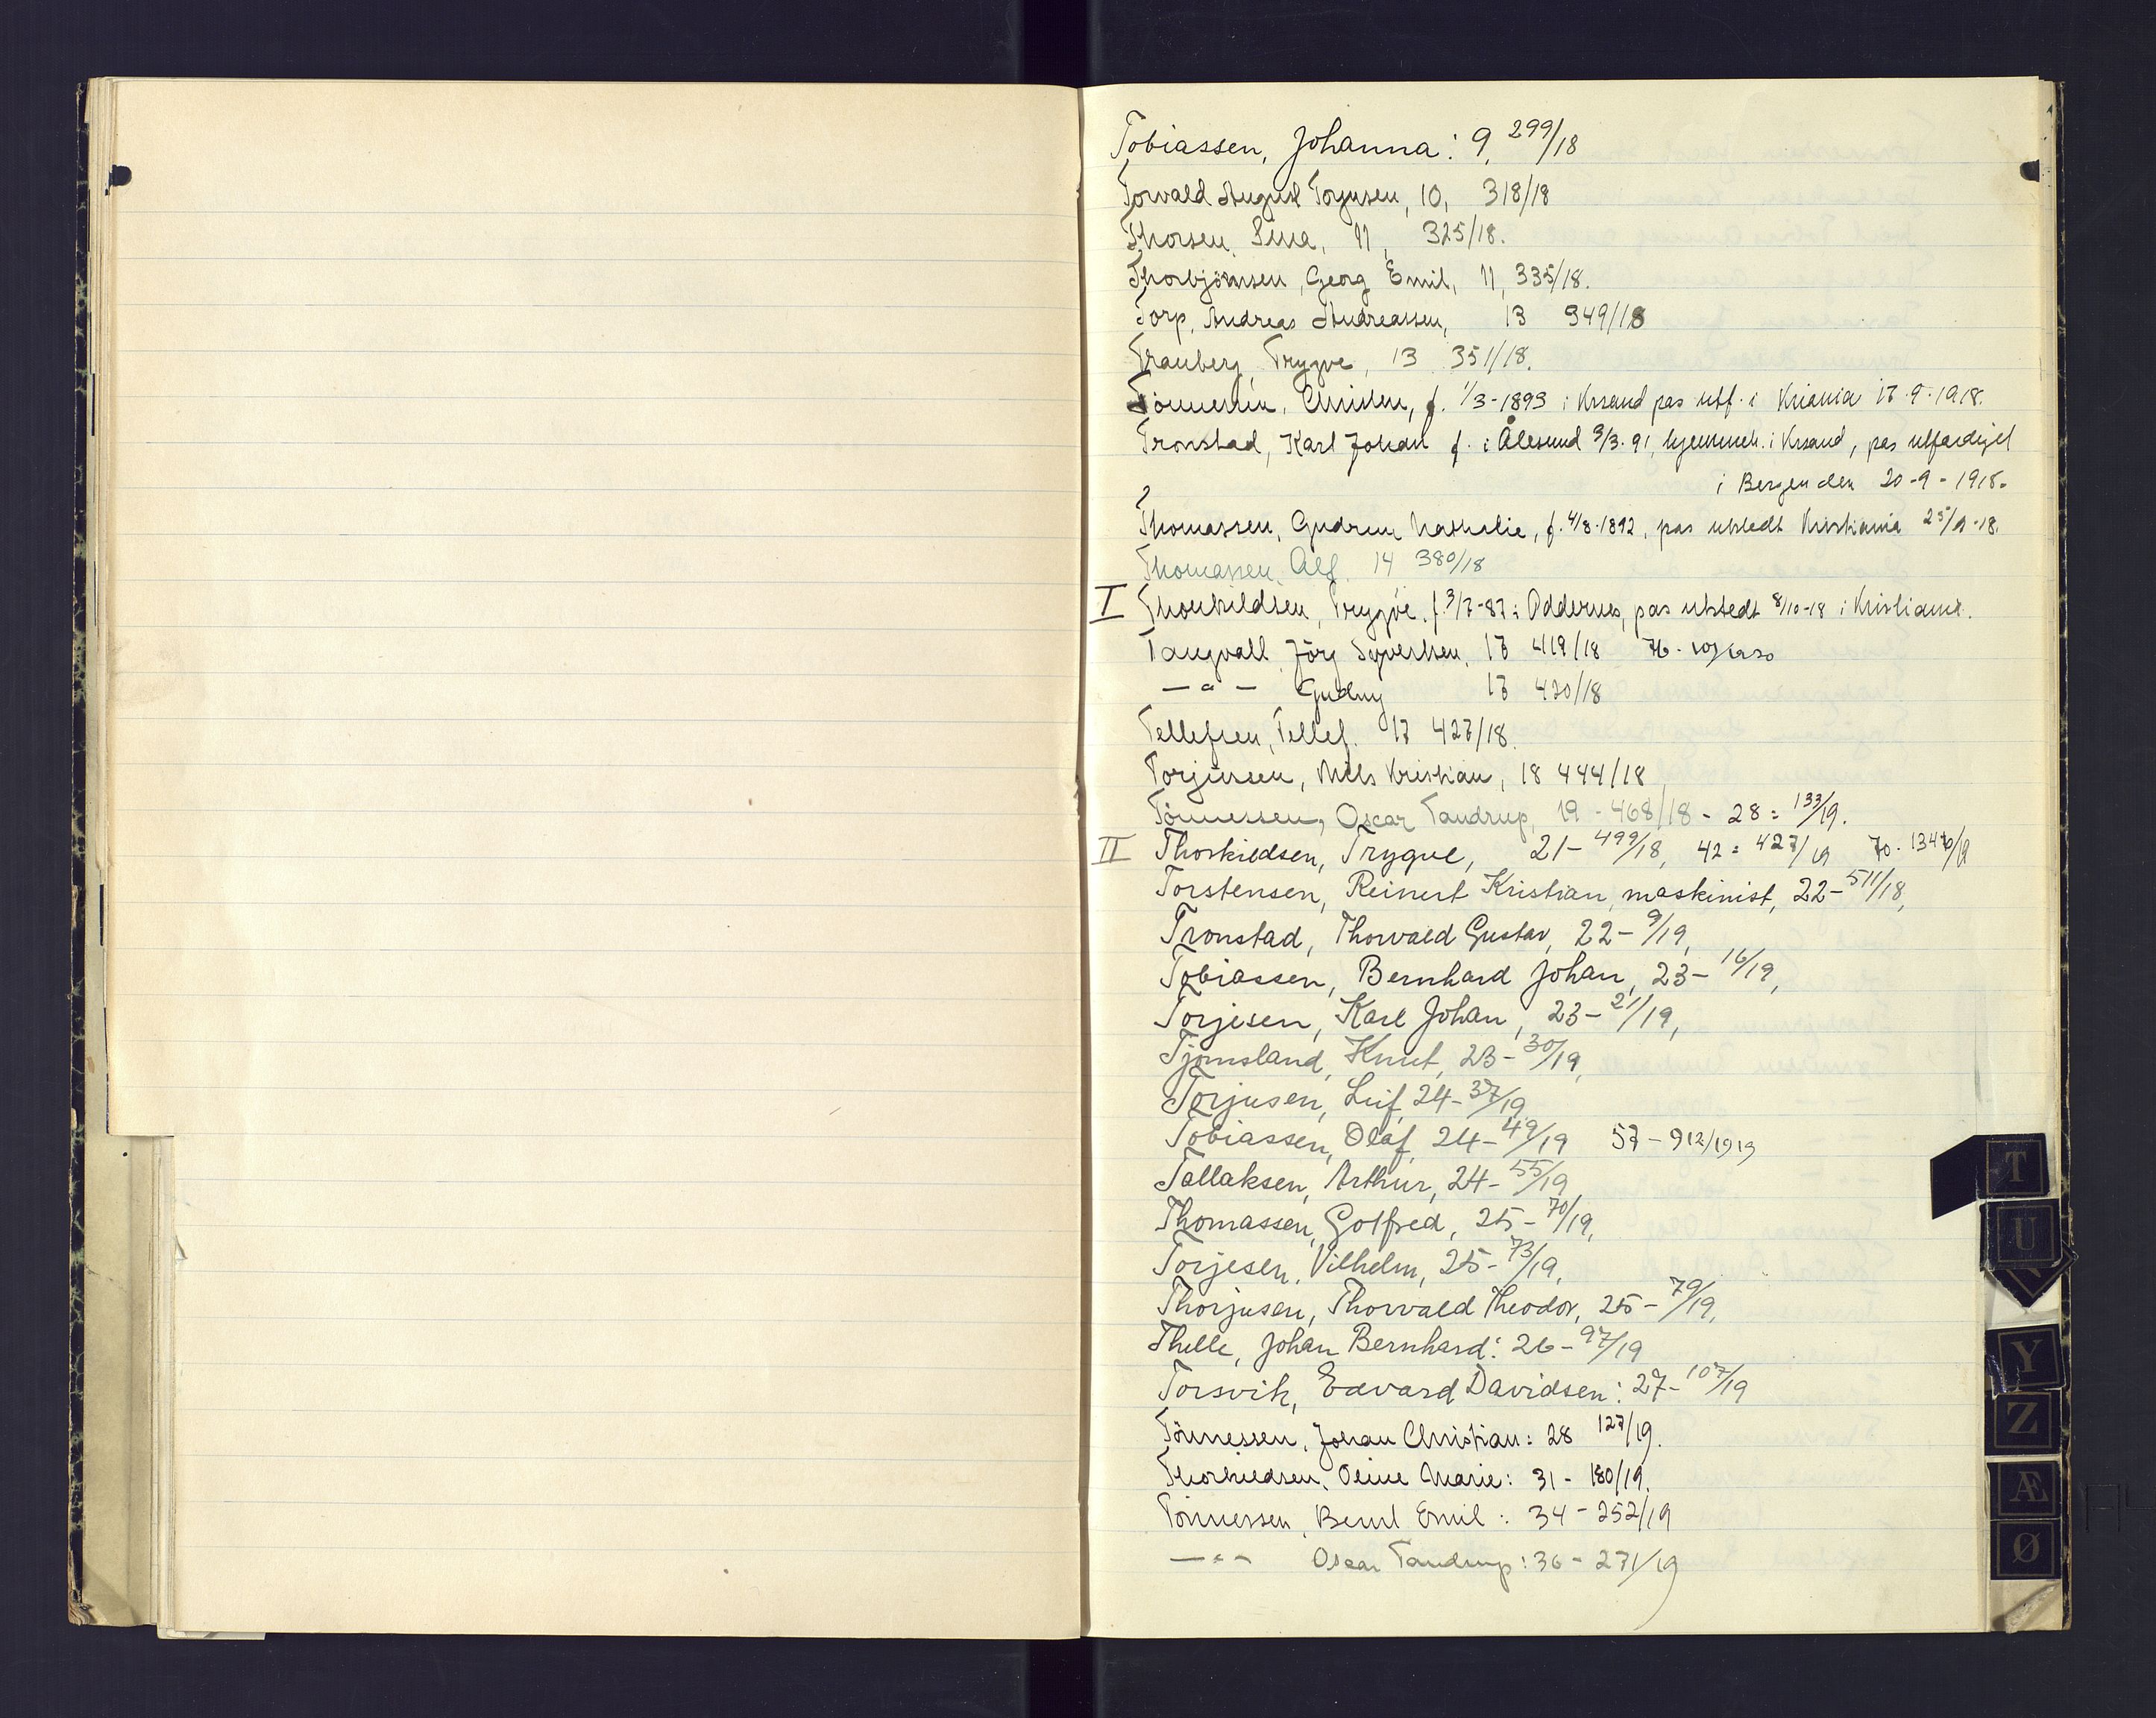 Tobiassen, Johanna: 9, 299/18
Torvald August Torjusen, 10, 318/18
Thorsen, Sina, 11, 325/18.
Thorbjörnsen, Georg Emil, 11, 335/18.
Torp, Andreas Andreassen, 13 349/18
Tranberg, Trygve, 13 351/18.
Tönnessen, Christen, f. 1/3-1893 i Krsand pas utf. i Kriania 17-9-1918.
Tronstad, Karl Johan f. i Ålesund 3/3-91, hjemmeh. i Krsand, pas utfærdiget
i Bergen den 20-9-1918.
Thomassen, Gudrun Nathalie, f. 4/8-1892, pas utstedt Kristiania 25/9-18.
Thomassen, Alf. 14 380/18
I Thorkildsen, Trygve, f. 3/7-87 i Oddernes, pas utstedt 8/10-18 i Kristiania.
Tangvall Jörg Syvertsen, 17 419/18 76-
—"— Gudny 17 420/18
Tellefsen, Tellef. 17 427/18.
Torjussen, Nils Kristian, 18 444/18
Tönnessen, Oscar Tandrup, 19-468/18 - 28 = 133/19.
II Thorkildsen, Trygve, 21-499/18, 42 = 427/19 70-1346/19
Torstensen, Reinert Kristian, maskinist, 22-511/18,
Tronstad, Thorvald Gustav, 22-9/19,
Tobiassen, Bernhard Johan, 23-16/19,
Torjesen, Karl Johan, 23-21/19,
Tjomsland, Knut, 23-30/19,
Torjusen, Leif, 24-37/19
Tobiassen, Olaf, 24-49/19 57-912/1919
Tallaksen, Arthur, 24-55/19
Thomassen, Gotfred, 25-70/19,
Torjesen, Vilhelm, 25-73/19,
Thorjusen, Thorvald Theodor, 25-79/19,
Thelle, Johan Bernhard: 26-97/19
Torsvik, Edvard Davidsen: 27-107/19
Tönnessen, Johan Christian: 28 127/19.
Thorkildsen, Oline Marie: 31-180/19.
Tönnessen, Bernt Emil: 34-252/19
—"— Oscar Tandrup: 36-271/19
T
U
Y
Z
Æ
Ø